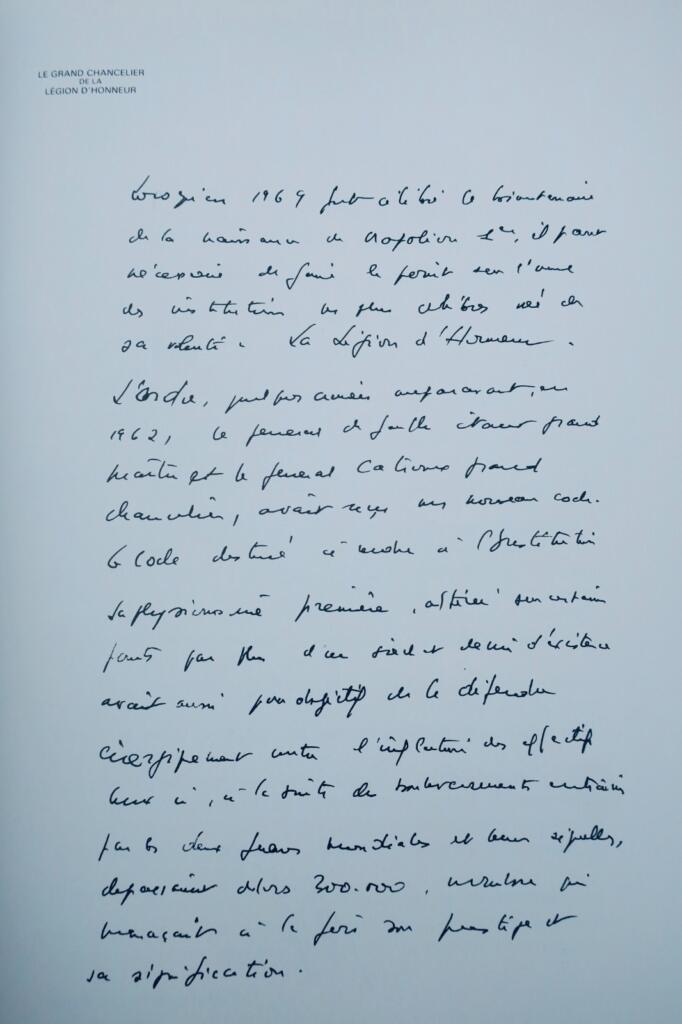 LE GRAND CHANCELIER
DE LA
LÉGION D'HONNEUR
Lorsqu'en 1969 fut célébré le bicentenaire
de la naissance de Napoléon 1er, il parut
nécessaire de faire le point sur l'une
des institutions les plus célèbres née de
sa volonté : La Légion d'Honneur.
L'ordre, quelques années auparavant, en
1962, le général de Gaulle étant grand
maître et le général Catroux grand
chancelier, avait reçu un nouveau code.
Ce Code destiné à rendre à l'Institution
sa physionomie première, altérée sur certains
points par plus d'un siècle et demi d'existence
avait aussi pour objectif de la défendre
énergiquement contre l'inflation des effectifs
, à la suite de bouleversements entraînés
par les deux guerres mondiales et leurs séquelles,
dépassaient alors 300.000, nombre qui
menaçait à la fois son prestige et
sa signification.